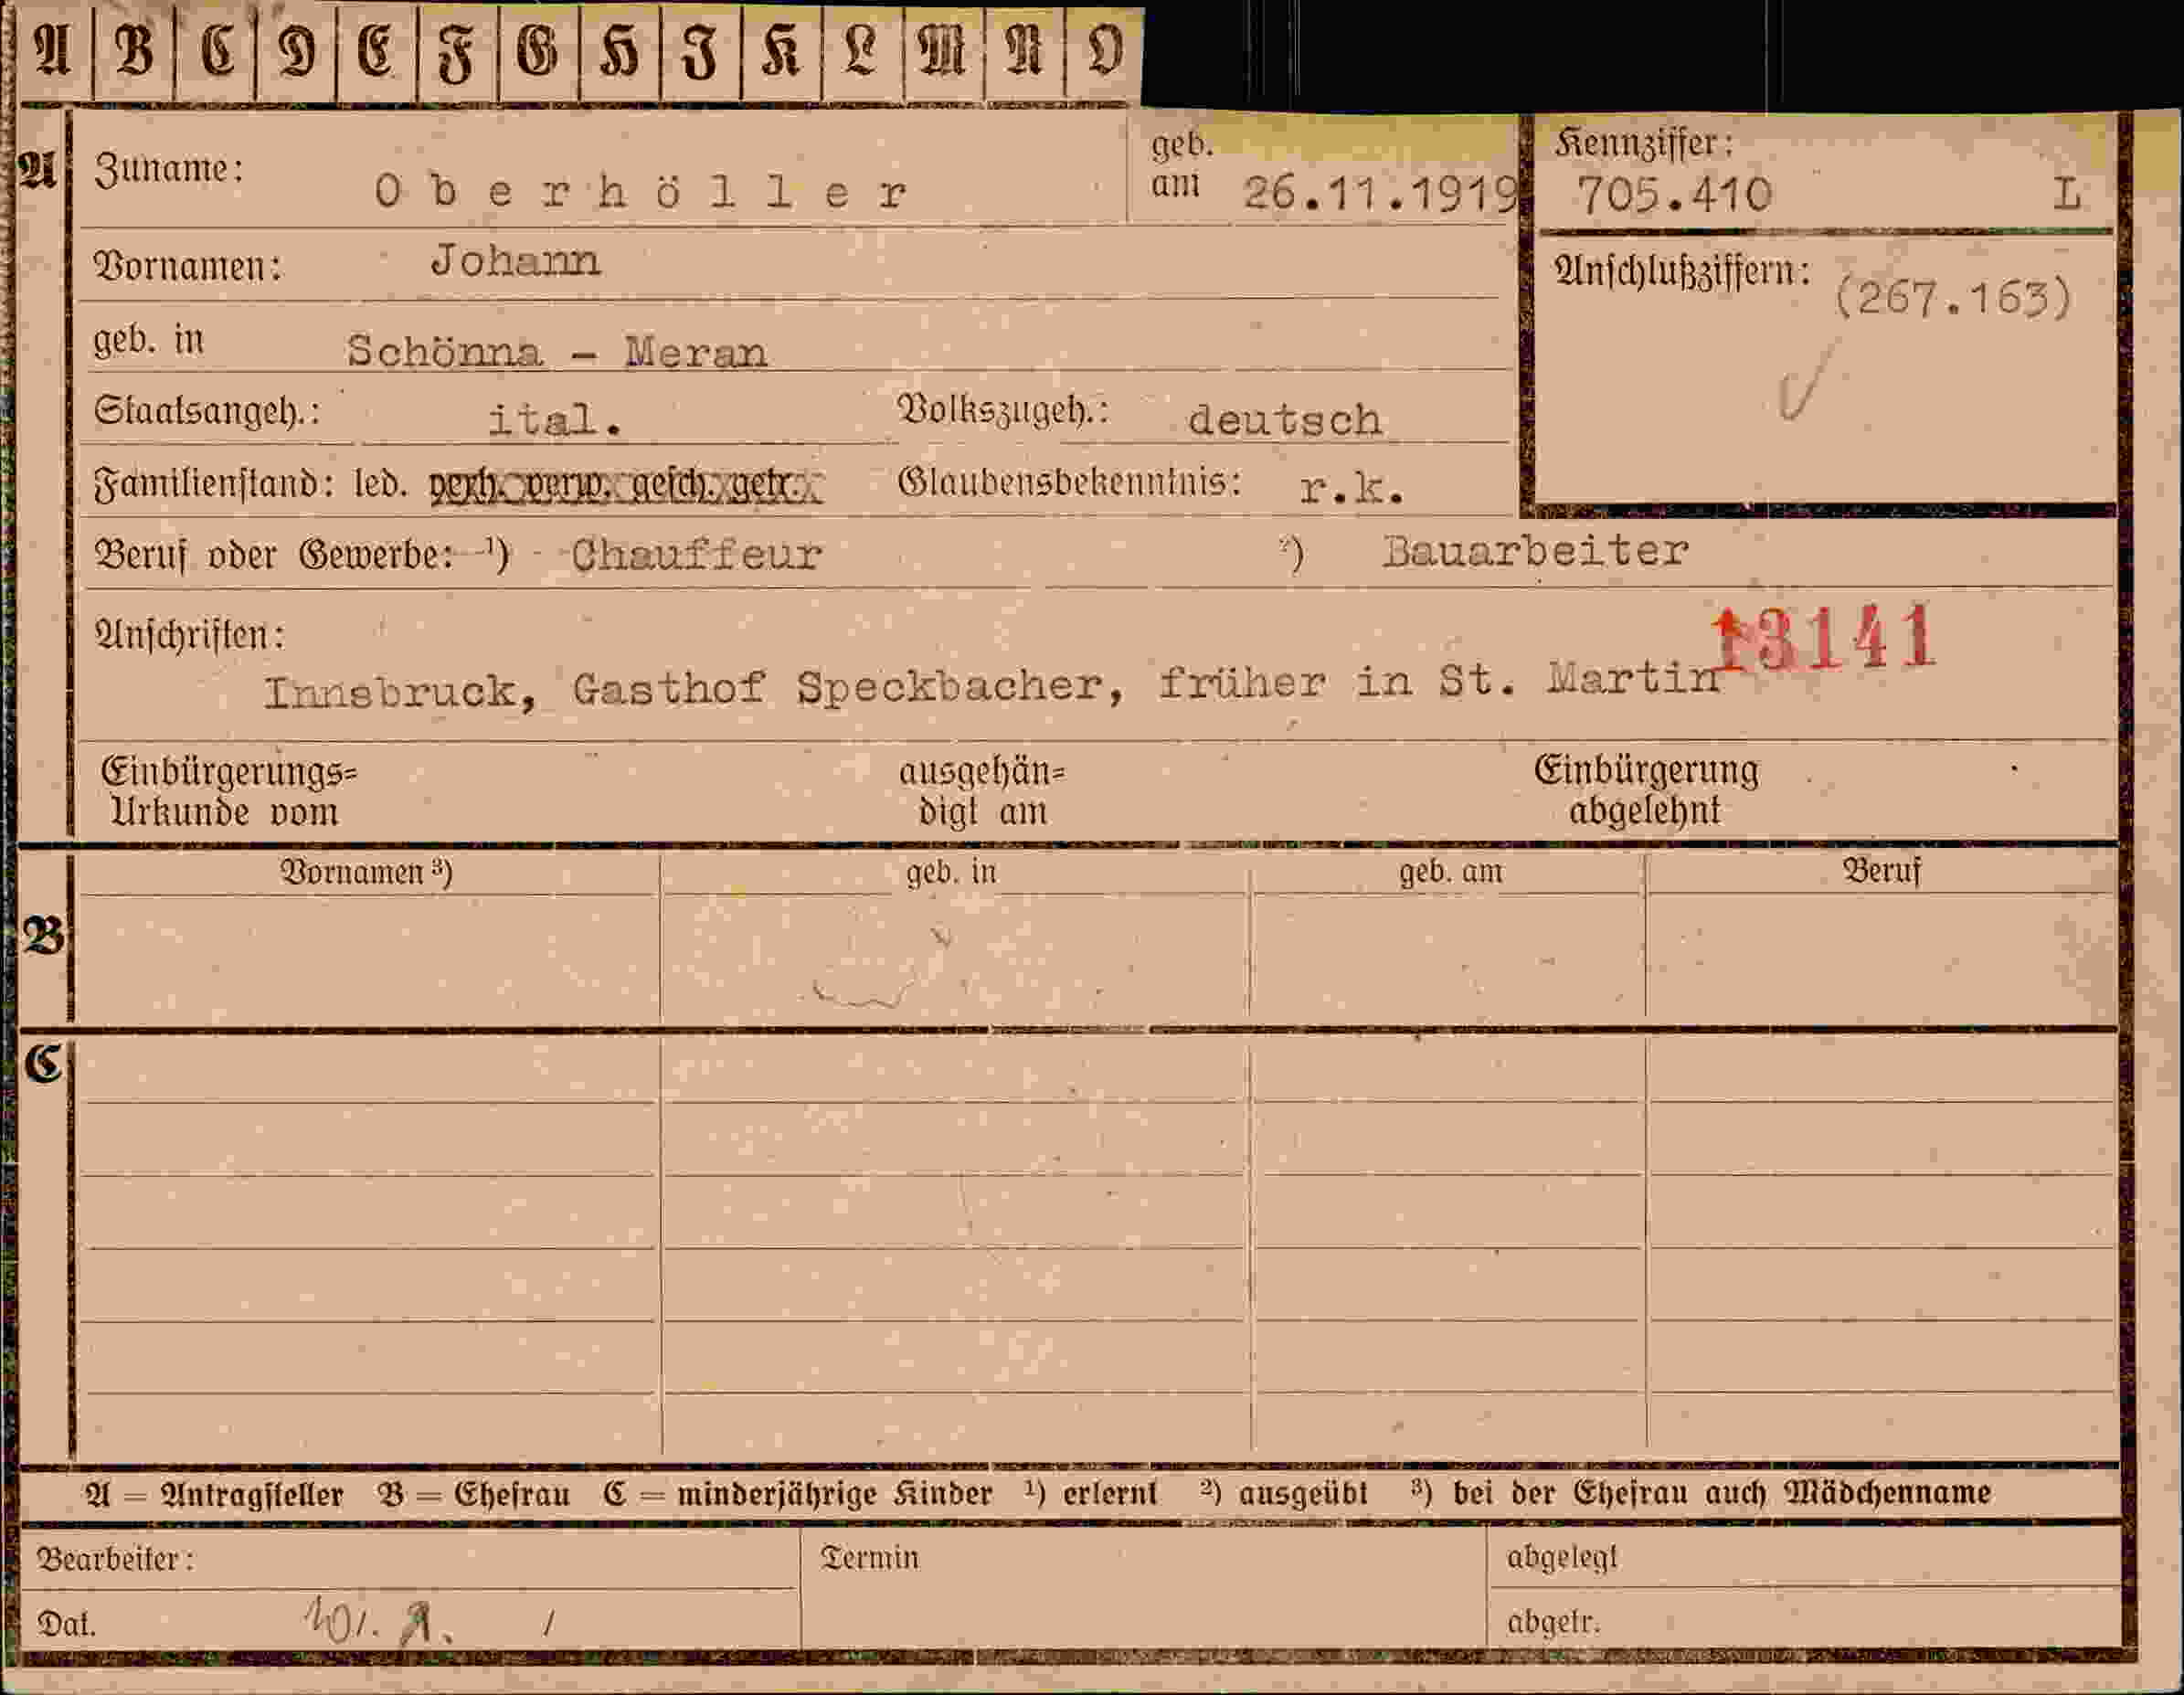 A B C D E F G H I K L M N O
A Zuname: Oberhöller geb. am 26.11.1919 Kennziffer: 705.410 L
Vornamen: Johann Anschlußziffern: (267.163)
geb. in Schönna - Meran
Staatsangeh.: ital. Volkszugeh.: deutsch
Familienstand: led. verh. verw. gesch. getr. Glaubensbekenntnis: r.k.
Beruf oder Gewerbe: ¹) Chauffeur ²) Bauarbeiter
Anschriften: 13141
Innsbruck, Gasthof Speckbacher, früher in St. Martin
Einbürgerungs= ausgehän= Einbürgerung
Urkunde vom digt am abgelehnt
Vornamen ³) geb. in geb. am Beruf
B
C
A = Antragsteller B = Ehefrau C = minderjährige Kinder ¹) erlernt ²) ausgeübt ³) bei der Ehefrau auch Mädchenname
Bearbeiter: Termin abgelegt
Dat. abgetr.